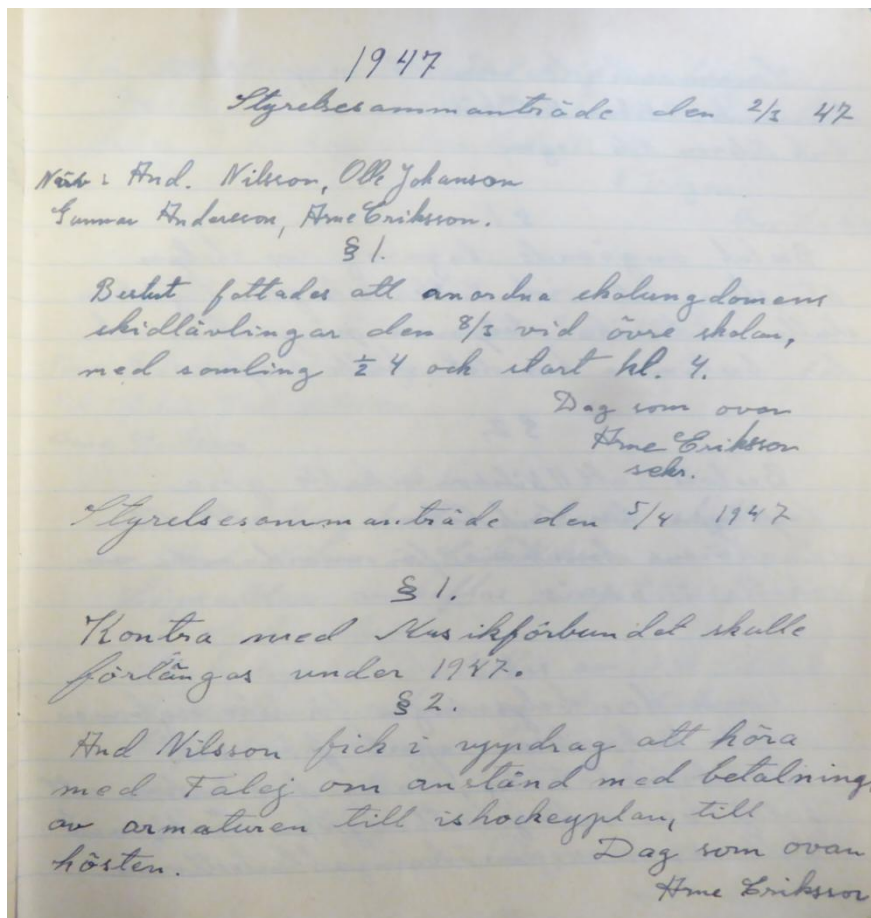 1947
Styrelsesammanträde den 2/3 47
Närv: And. Nilsson, Olle Johanson
Gunnar Andersson, Arne Eriksson.
§ 1.
Beslut fattades att anordna skolungdomens
skidtävlingar den 8/3 vid övre skolan,
med samling ½ 4 och start kl. 4.
Dag som ovan
Arne Eriksson
sekr.
Styrelsesammanträde den 5/4 1947
§ 1.
Kontra med Musikförbundet skulle
förlängas under 1947.
§ 2.
And Nilsson fick i uppdrag att höra
med Falej om anstånd med betalning
av armaturen till ishockeyplan, till
hösten.
Dag som ovan
Arne Eriksson